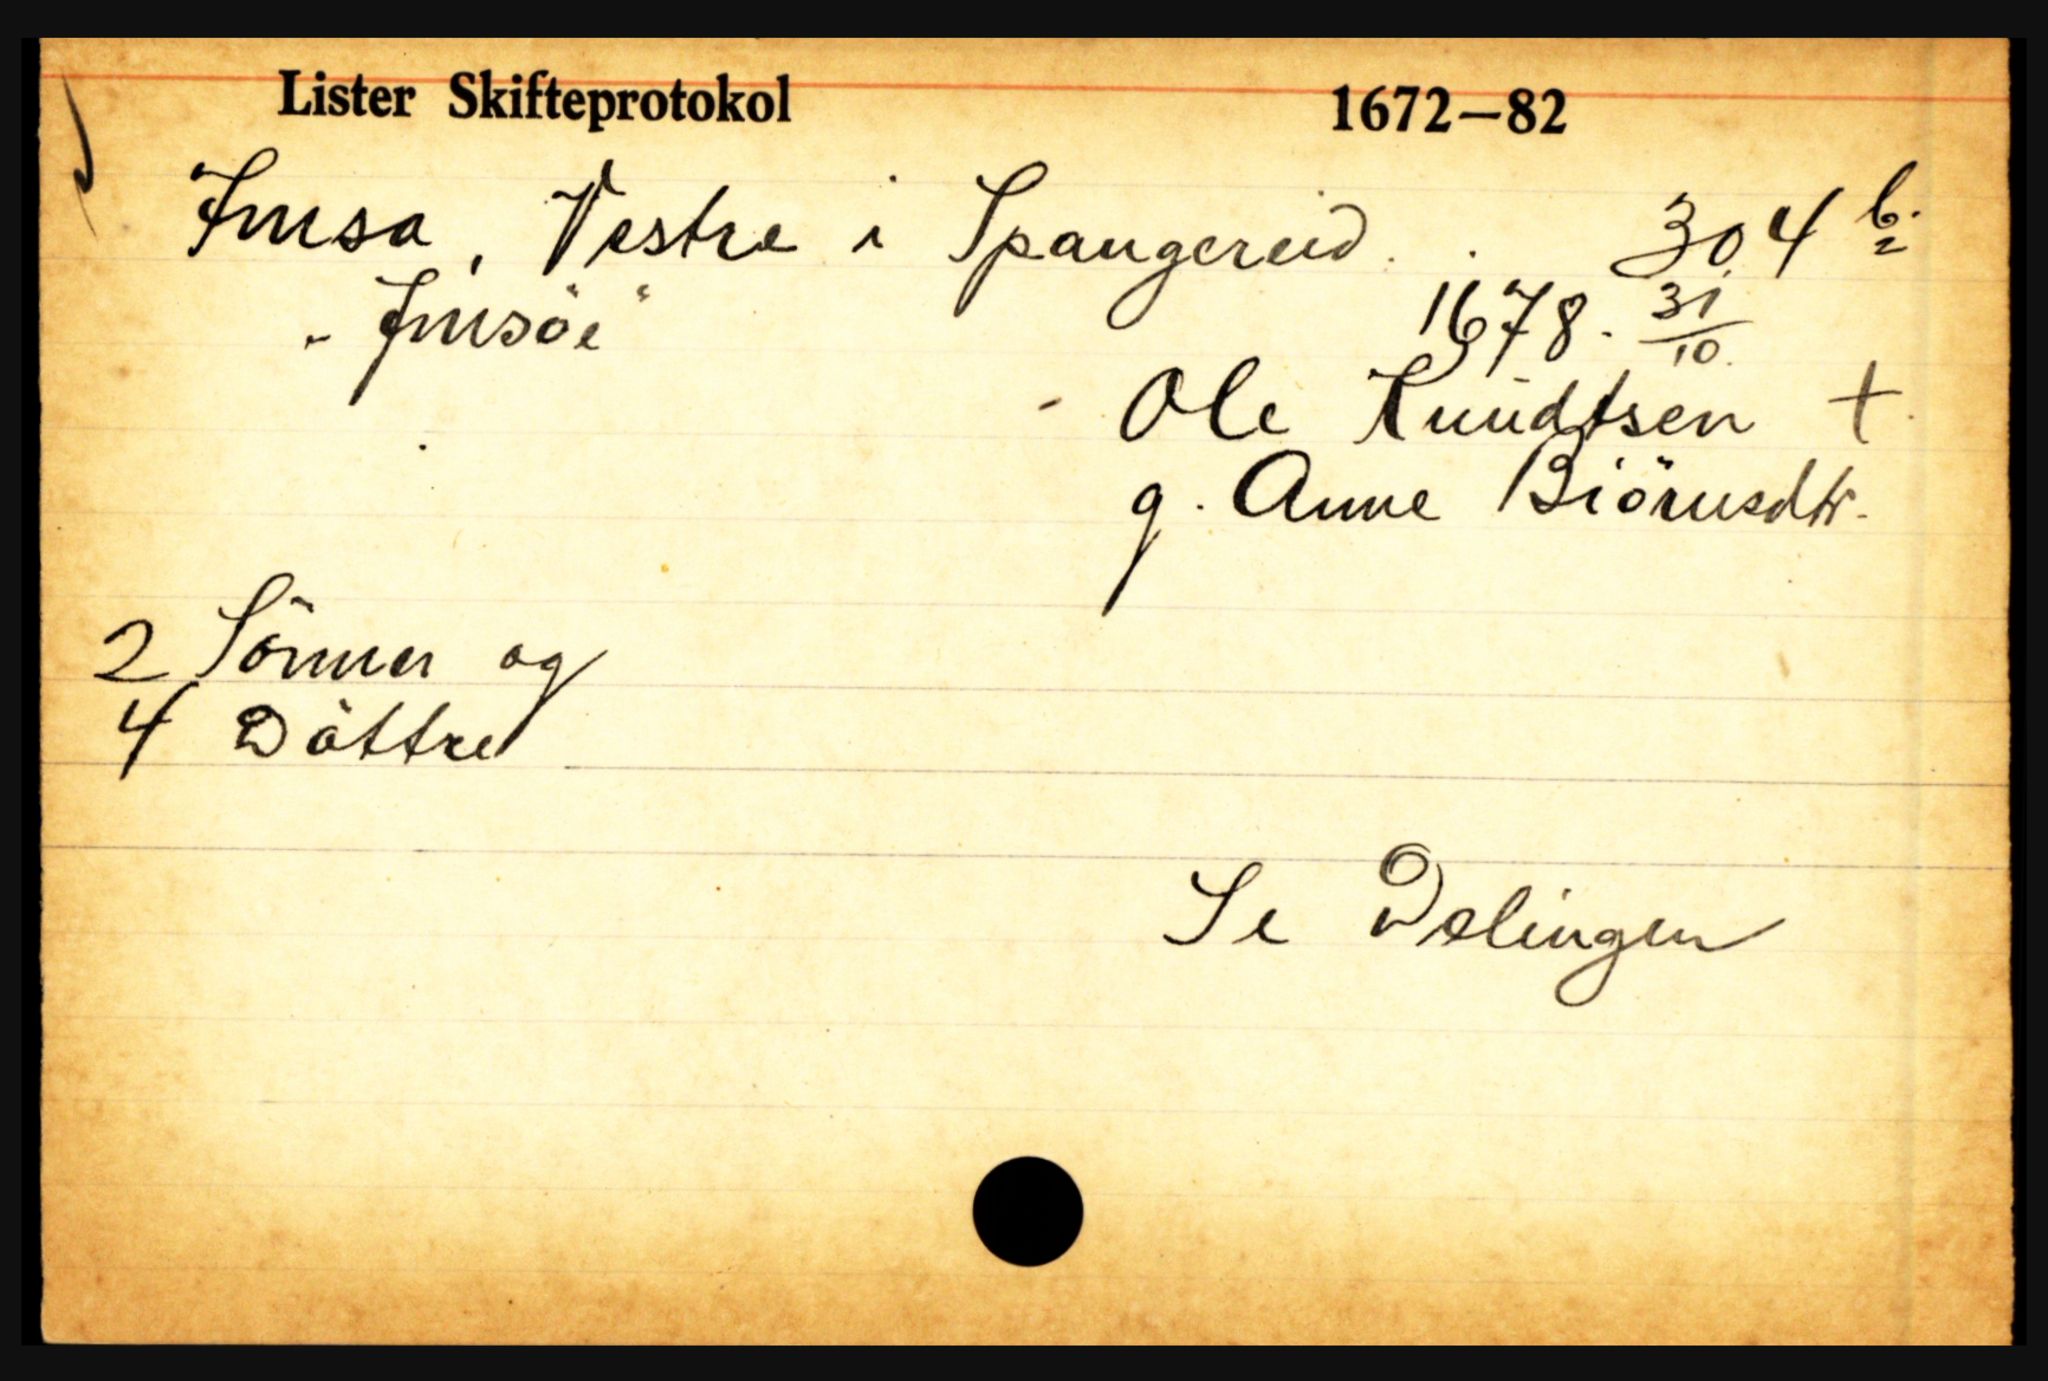 Lister Skifteprotokol 1672–82
Jmsa, Vestre i Spangereid. 304 b.
2
" Jmsöe" 1678. 31/10.
- Ole Knudtsen +
g. Anne Biörnsdtr.
2 Sönner og
4 Döttre
Se Delingen